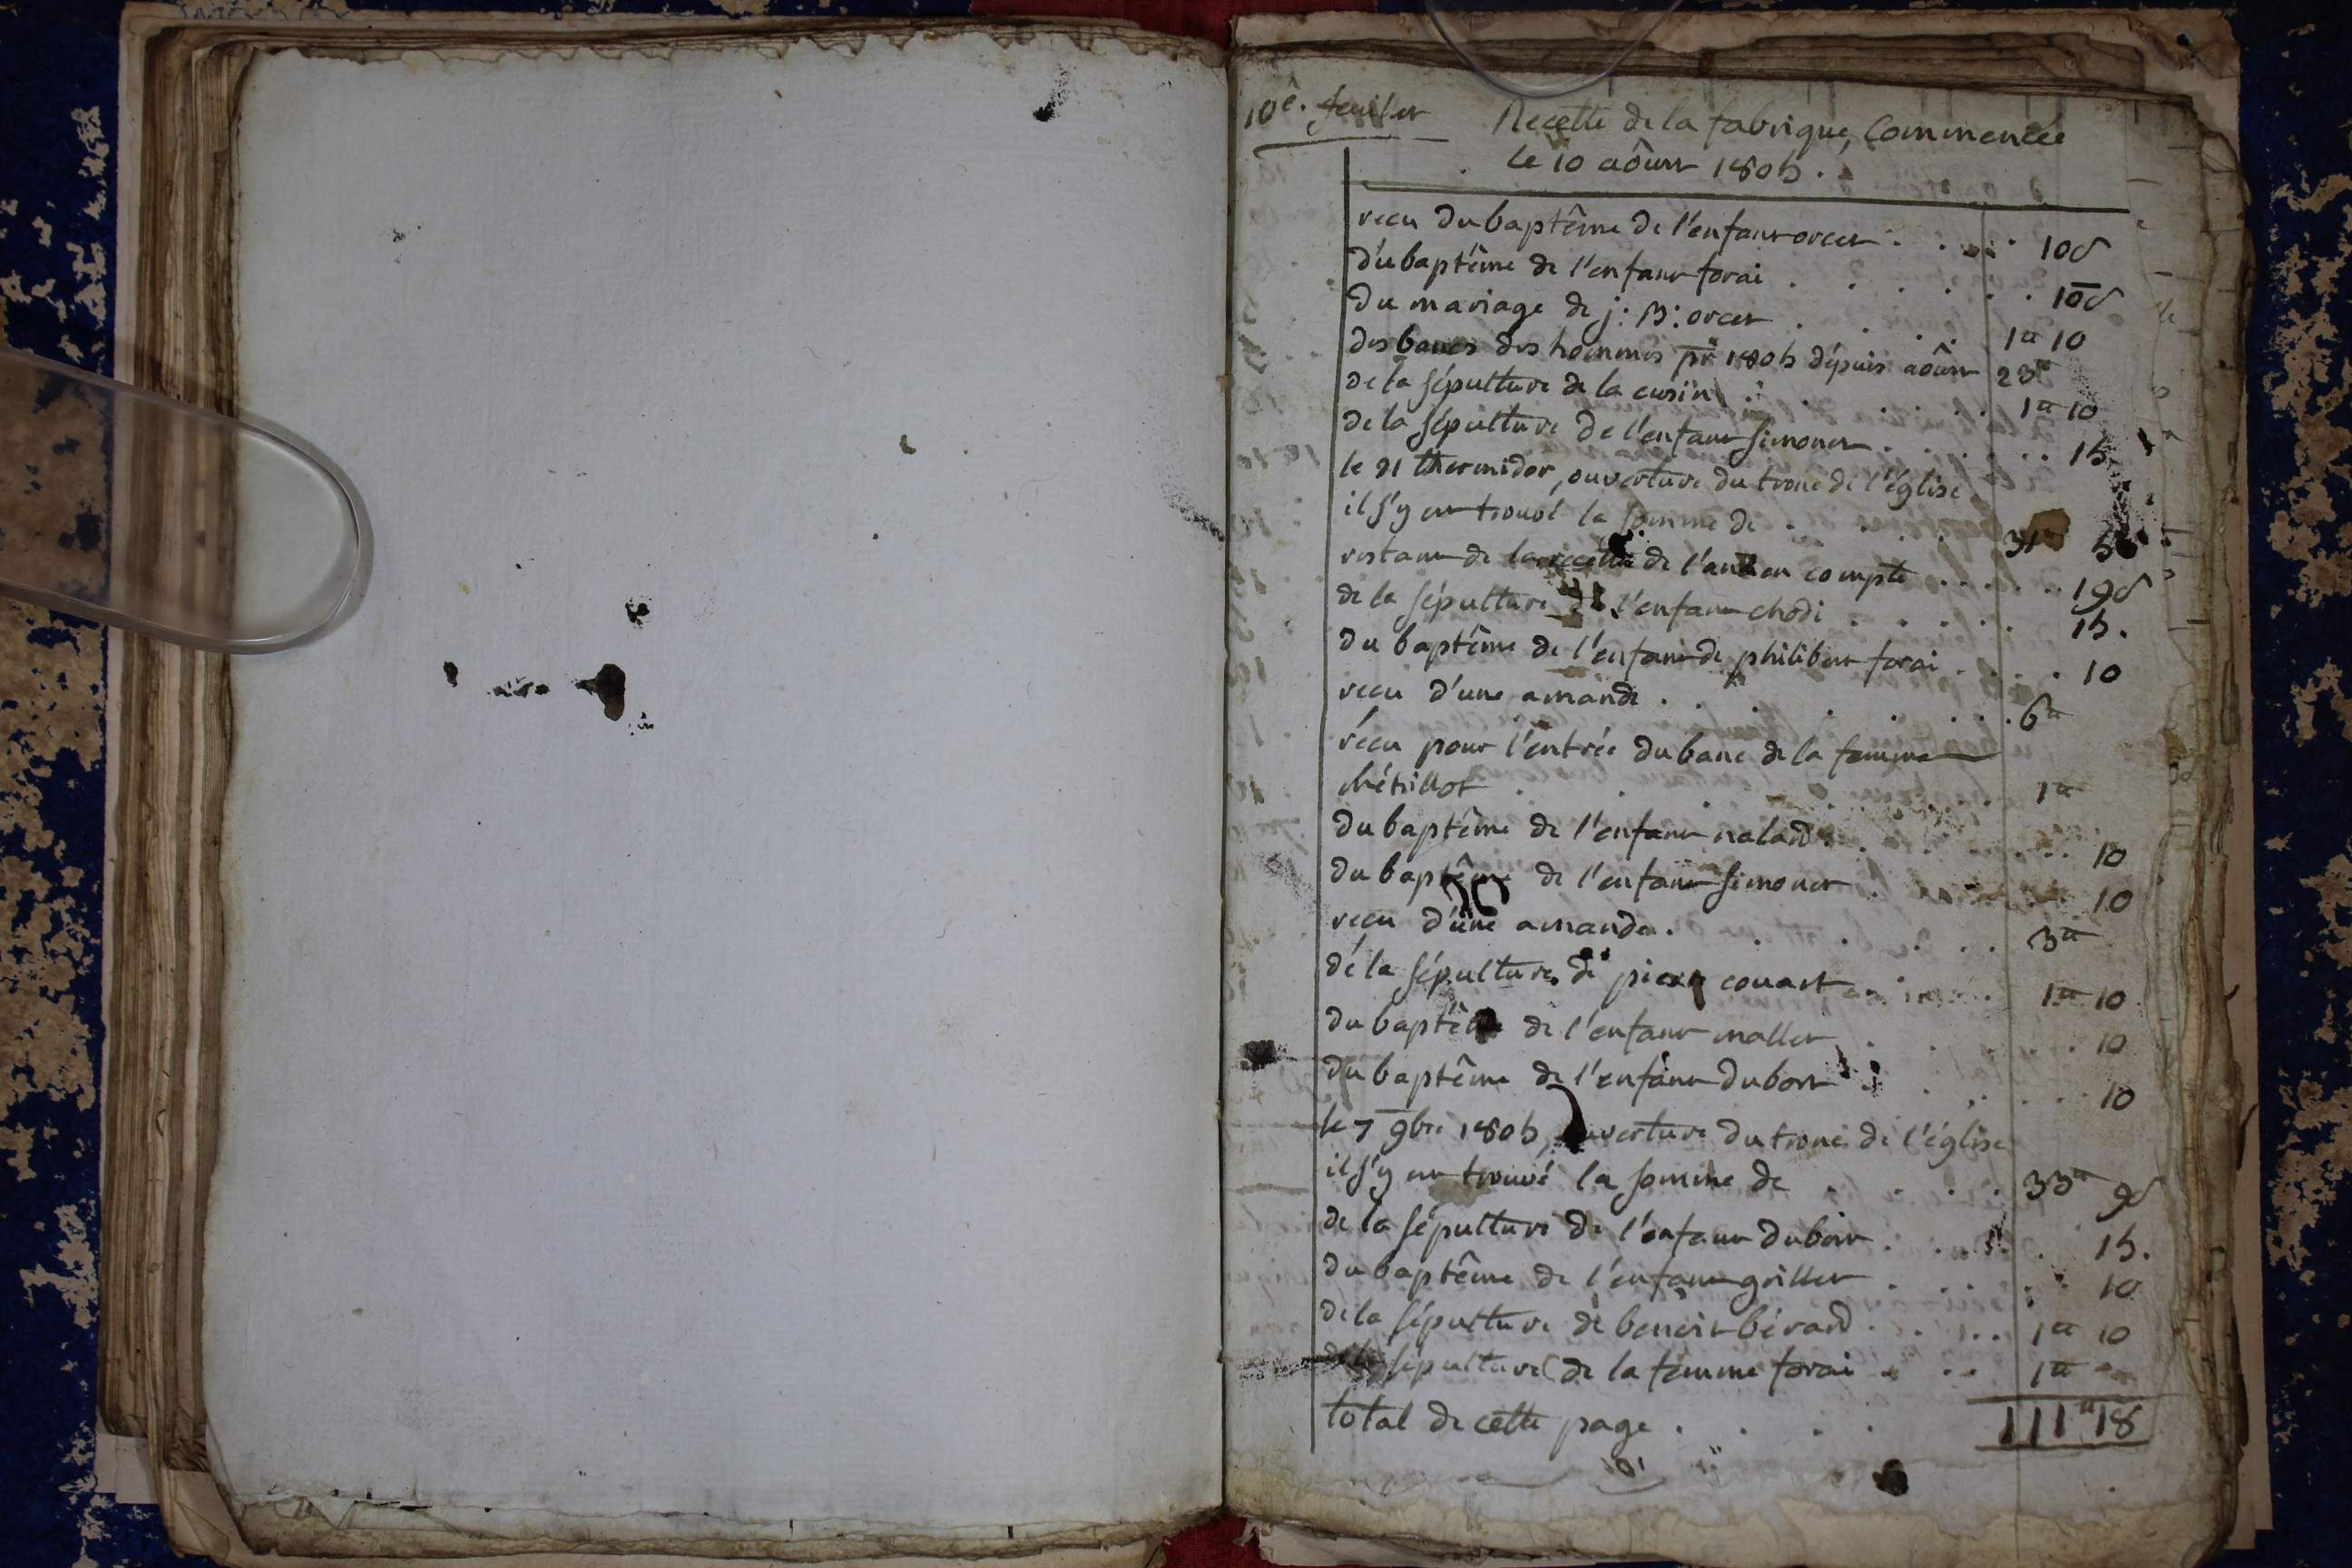 10e. feuillet
Recette de la fabrique, Commencée
le 10 aôust 1805.
recu du baptême de l'enfant orcet . . . . 10s
du baptême de l'enfant forai . . . . . . 10s
du mariage de j: B: orcet . . . . 1tt 10
des bancs des hommes pr 1805 dépuis aôust 23tt
de la sépulture de la cusin . . . . . 1tt 10
de la sépulture de l'enfant simonet . . . . . . 15
le 21 thermidor, ouverture du tronc de l'église
il s'y est trouvé la somme de . . . . 31 5
restant de la recette de l'ancien compte . . . . . . 19s
de la sépulture de l'enfant chodi . . . . . 15.
du baptême de l'enfant de philibert forai . . . . 10
recu d'une amande . . . . . . . 6tt
récu pour l'entrée du banc de la femme
chétillot . . . . . . . 1tt
du baptême de l'enfant naland . . . . . . . 10
du baptême de l'enfant simonet . 10
recu d'une amande . . . . . . 3tt
dé la sépulture de pierre couart . . . . 1tt 10
du baptême de l'enfant mallet . . . . . . 10
du baptême de l'enfant dubost . . . . . . 10
le 7 9bre 1805, ouverture du tronc de l'église
il s'y est trouvé la somme de . . . . 33tt 9s
de la sépulture de l'enfant dubost . . . . . 15.
du baptême de l'enfant grillet . . . . . 10
de la sépulture de benoit bérard . . . . 1tt 10
de la sépulture de la femme forai . . . 1tt
total de cette page . . . . 111tt 18